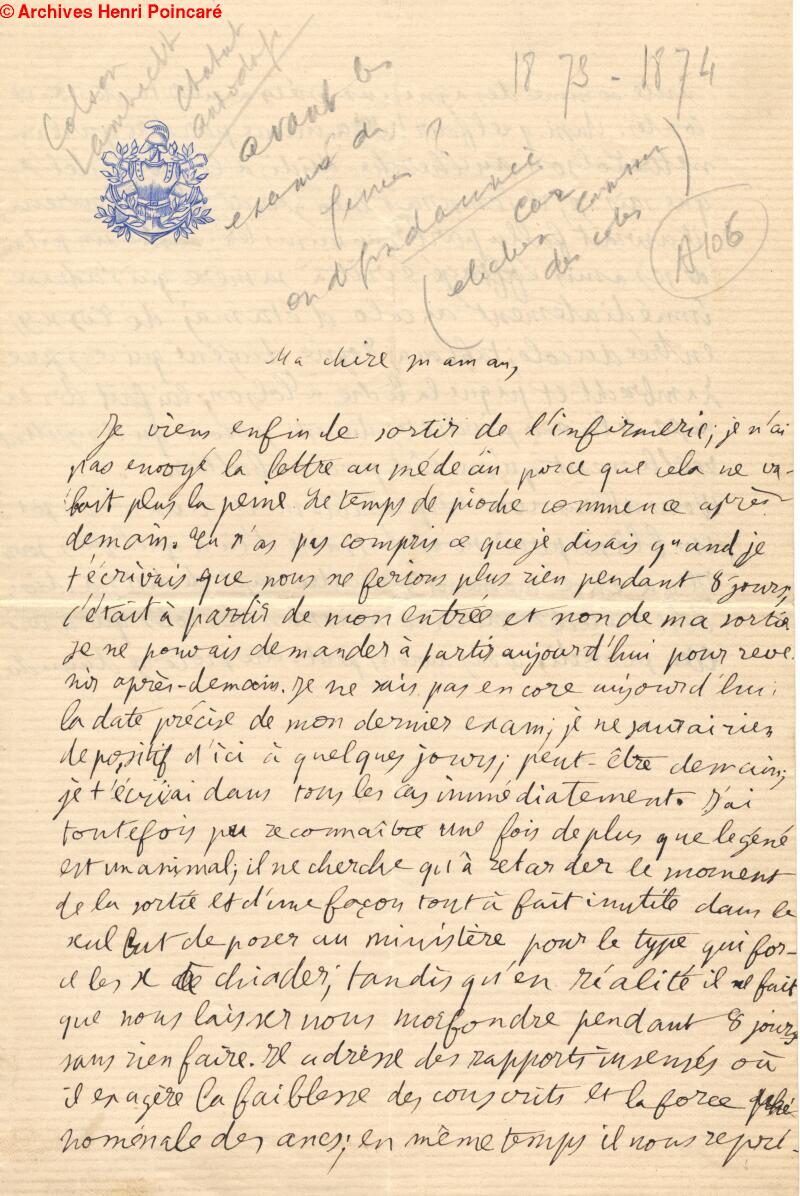 © Archives Henri Poincaré
Colson
Lambrecht
Chatat
avant les
1873 - 1874
exams de
fin d'année
car
(
)
des cotes
A 106
Ma chère maman,
Je viens enfin de sortir de l'infirmerie; je n'ai
pas envoyé la lettre au médecin parce que cela ne va-
lait plus la peine. Le temps de pioche commence après-
demain. Tu n'as pas compris ce que je disais quand je
t'écrivais que nous ne ferions plus rien pendant 8 jours,
c'était à partir de mon entrée et non de ma sortie
Je ne pouvais demander à partir aujourd'hui pour reve
nir après-demain. Je ne sais pas encore aujourd'hui
la date précise de mon dernier exam; je ne saurai rien
de positif d'ici à quelques jours; peut-être demain;
je t'écrirai dans tous les cas immédiatement. J'ai
toutefois pu reconnaître une fois de plus que le géné
est un animal; il ne cherche qu'à retarder le moment
de la sortie et d'une façon tout à fait inutile dans le
seul but de poser au ministère pour le type qui for-
ce les X à chiader; tandis qu'en réalité il ne fait
que nous laisser nous morfondre pendant 8 jours
sans rien faire. Il adresse des rapports insensés où
il exagère la faiblesse des conscrits et la force phé
noménale des ancs; en même temps il nous repré-